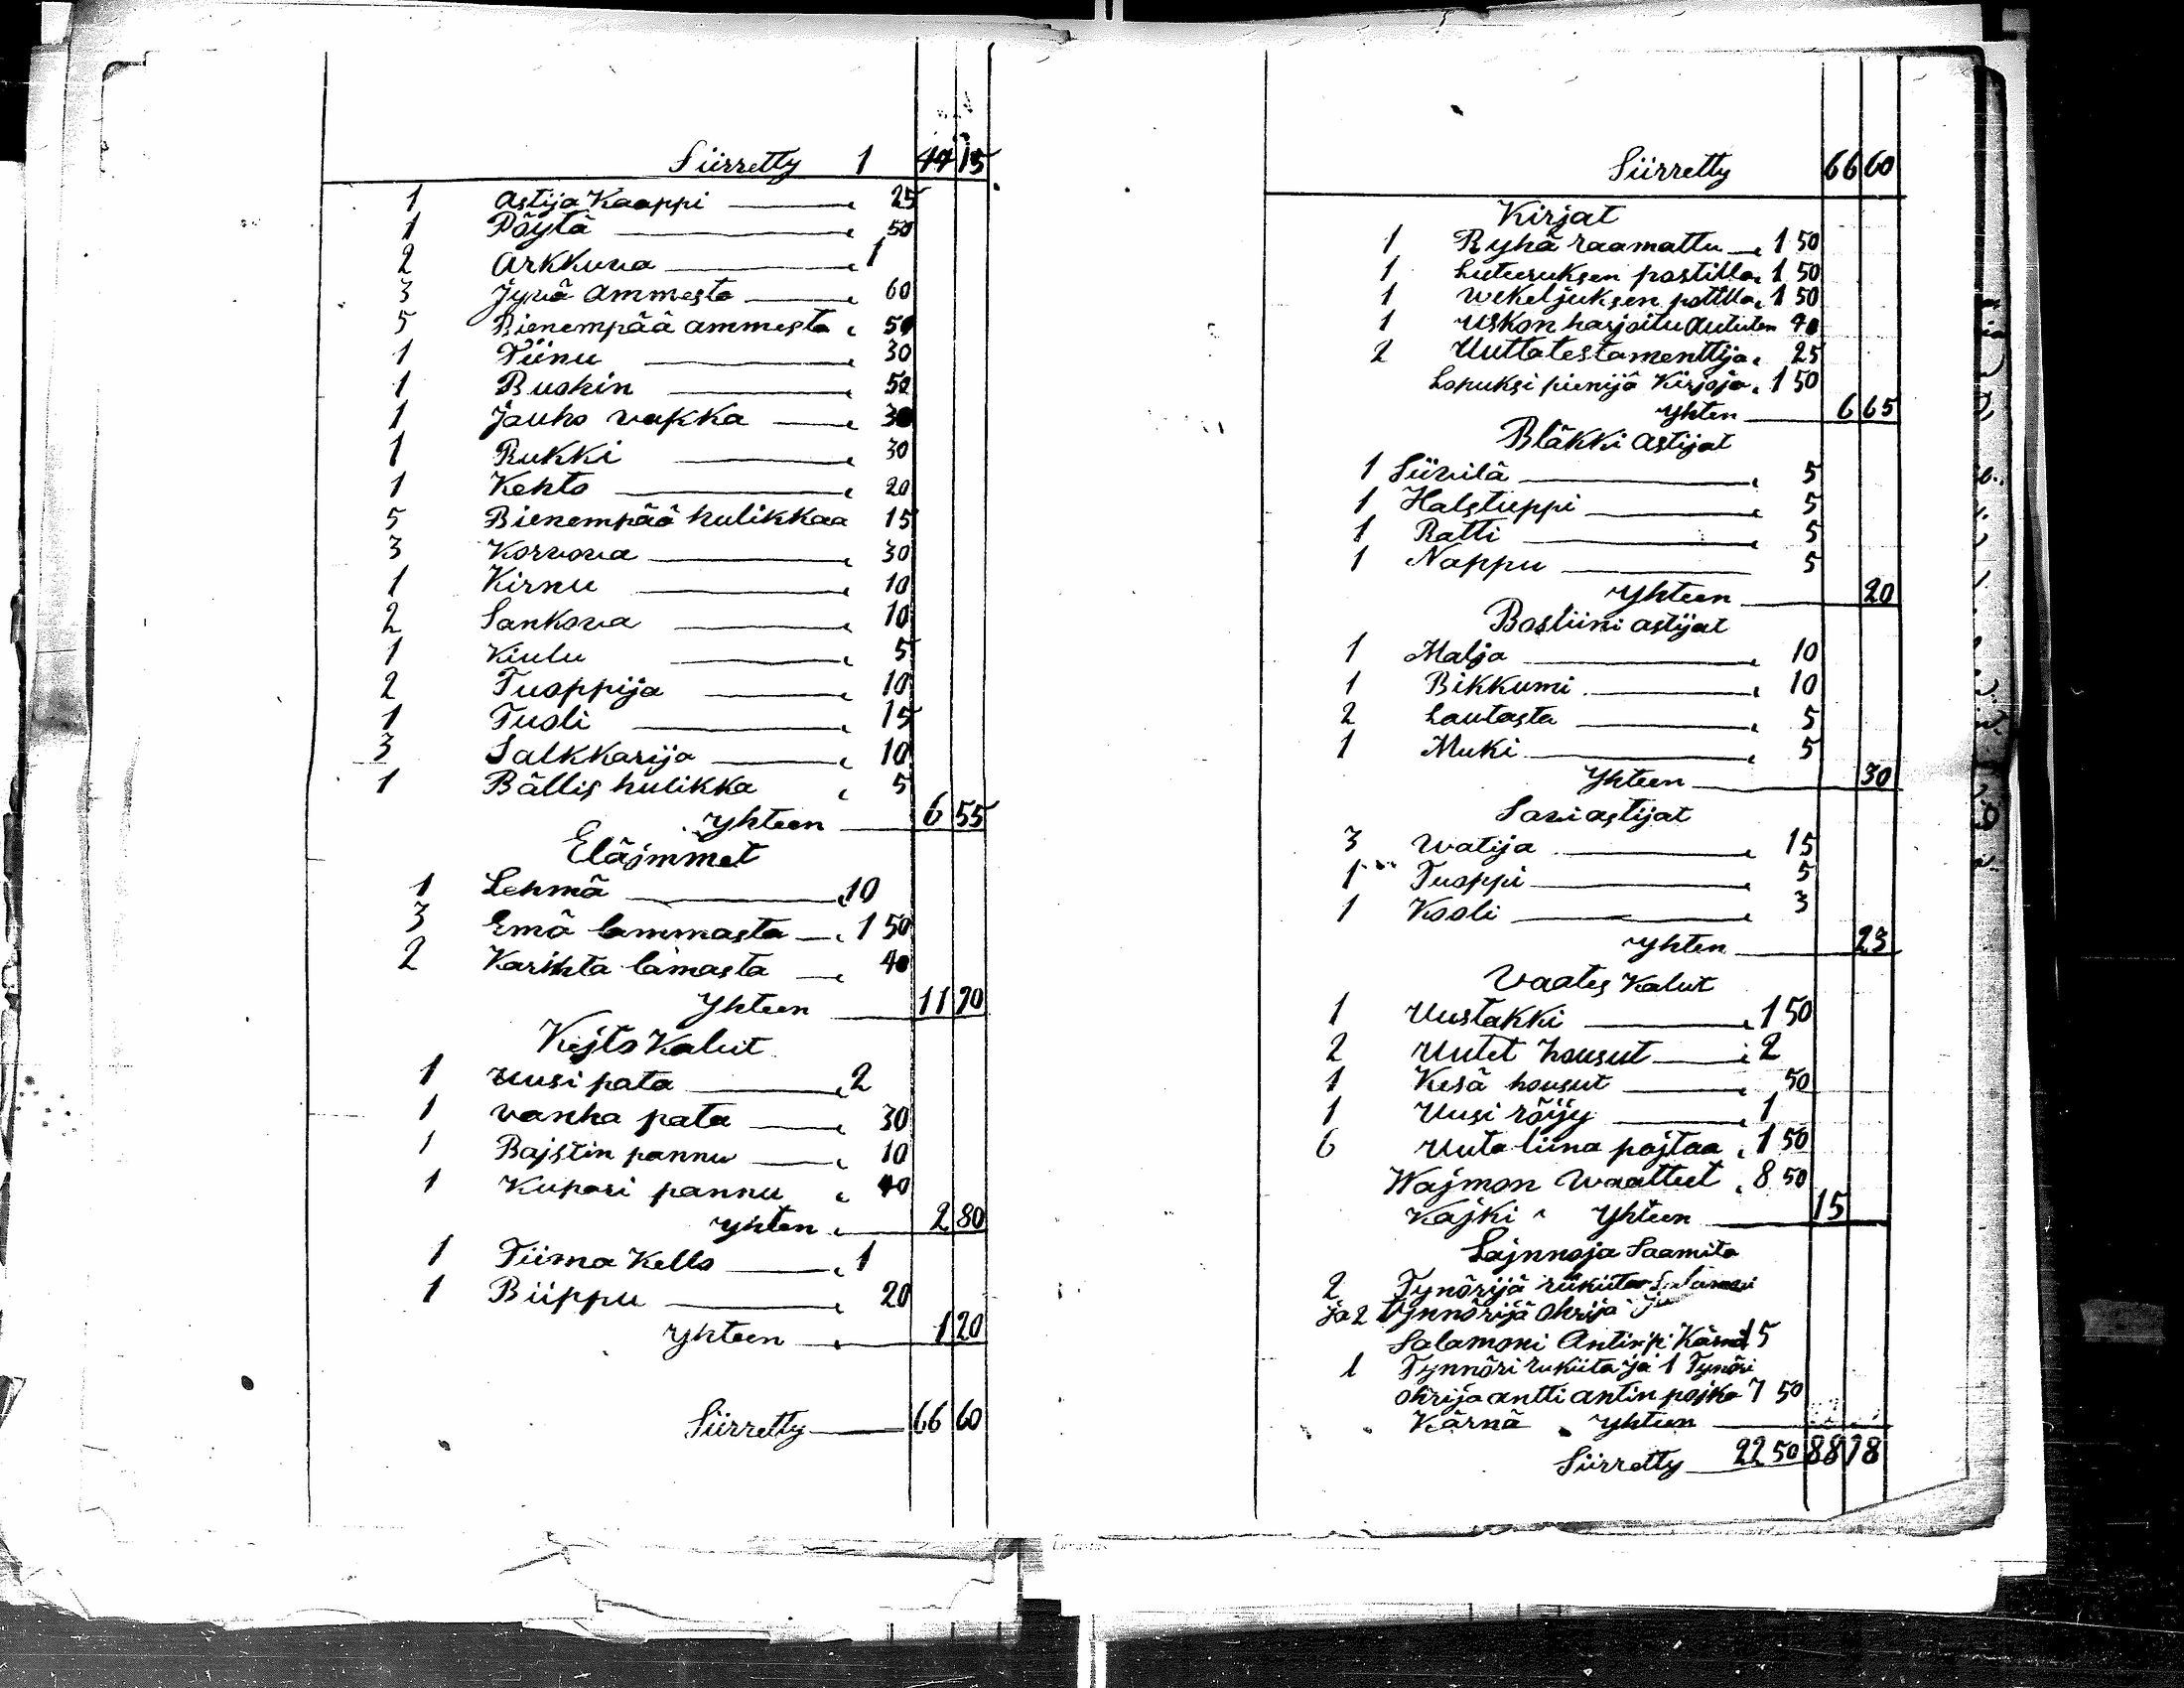 Siirretty 1 44 15
1 Astija Kaappi 25
1 Pöytä 50
2 Arkkuva 1
3 Jyvä Ammesta 60
5 Bienempää ammesta 50
1 Tiinu 30
1 Buskin 50
1 Jauho vakka 30
1 Rukki 30
1 Kehto 20
5 Bienempää hulikkaa 15
3 Korvova 30
1 Kirnu 10
2 Sankova 10
1 Kiulu 5
2 Tuoppija 10
1 Tuoli 15
3 Salkkarija 10
1 Bällis hulikka 5
Yhteen 6 55
Eläjmmet
1 Lehmä 10
3 Emä lammasta 1 50
2 Karihta lamasta 40
Yhteen 11 90
Kejto Kalut
1 Uusi pata 2
1 vanha pata 30
1 Bajstin pannu 10
1 Kupari pannu 40
yhten 2 80
1 Tiima Kello 1
1 Biippu 20
Yhteen 1 20
Siirretty 66 60
Siirretty 66 60
Kirjat
1 Ryhä raamattu 1 50
1 Luteeruksen postilla 1 50
1 Wekeljuksen potilla 1 50
1 Uskon harjoitu 40
2 Uuttatestamenttija 25
Lopuksi pienijä Kirjoja 1 50
yhten 6 65
Bläkki Astijat
1 Siivilä 5
1 Halstuppi 5
1 Ratti 5
1 Nappu 5
Yhteen 20
Bosliini astijat
1 Malja 10
1 Bikkumi 10
2 Lautasta 5
1 Muki 5
Yhteen 30
Saviastijat
3 Watija 15
1 Tuoppi 5
1 Kooli 3
yhten 23
Vaates Kalut
1 Uustakki 1 50
2 Uutet housut 2
1 Kesä housut 50
1 Uusi röijy 1
6 Uuta liina pajtaa 1 50
Wajmon Waatteet 8 50
Kajki Yhteen 15
Lajnnoja Saamita
2 Tynörijä
ja 2 Tynnörijä Ohrija
Salamoni Antinp: Kärnä 15
1 Tynnöri rukiita ja 1 Tynöri
Ohrija antti antin pojka 7 50
Kärnä Yhteen
Siirretty 22 50 88 78